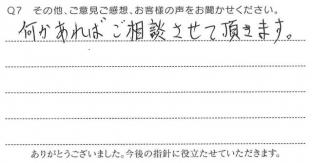 Q7 その他、ご意見ご感想、お客様の声をお聞かせください。
何かあればご相談させて頂きます。
ありがとうございました。今後の指針に役立たせていただきます。